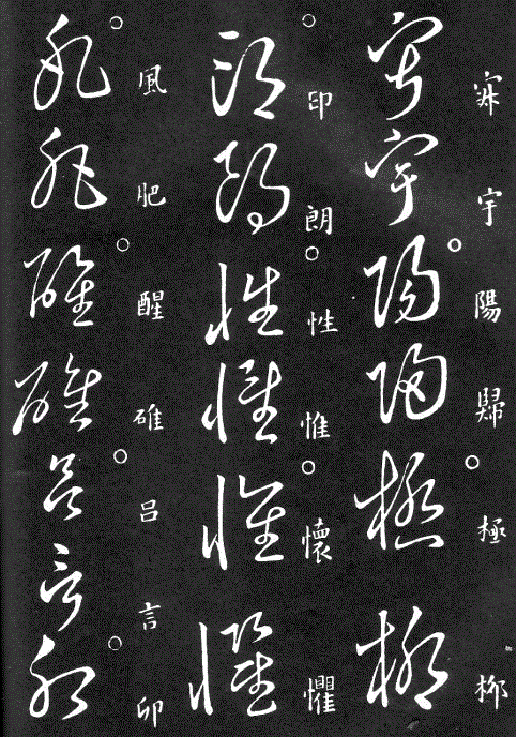 宇
陽
歸
極
柳
印
朗
性
惟
懷
懼
風
肥
醒
碓
呂
言
卯